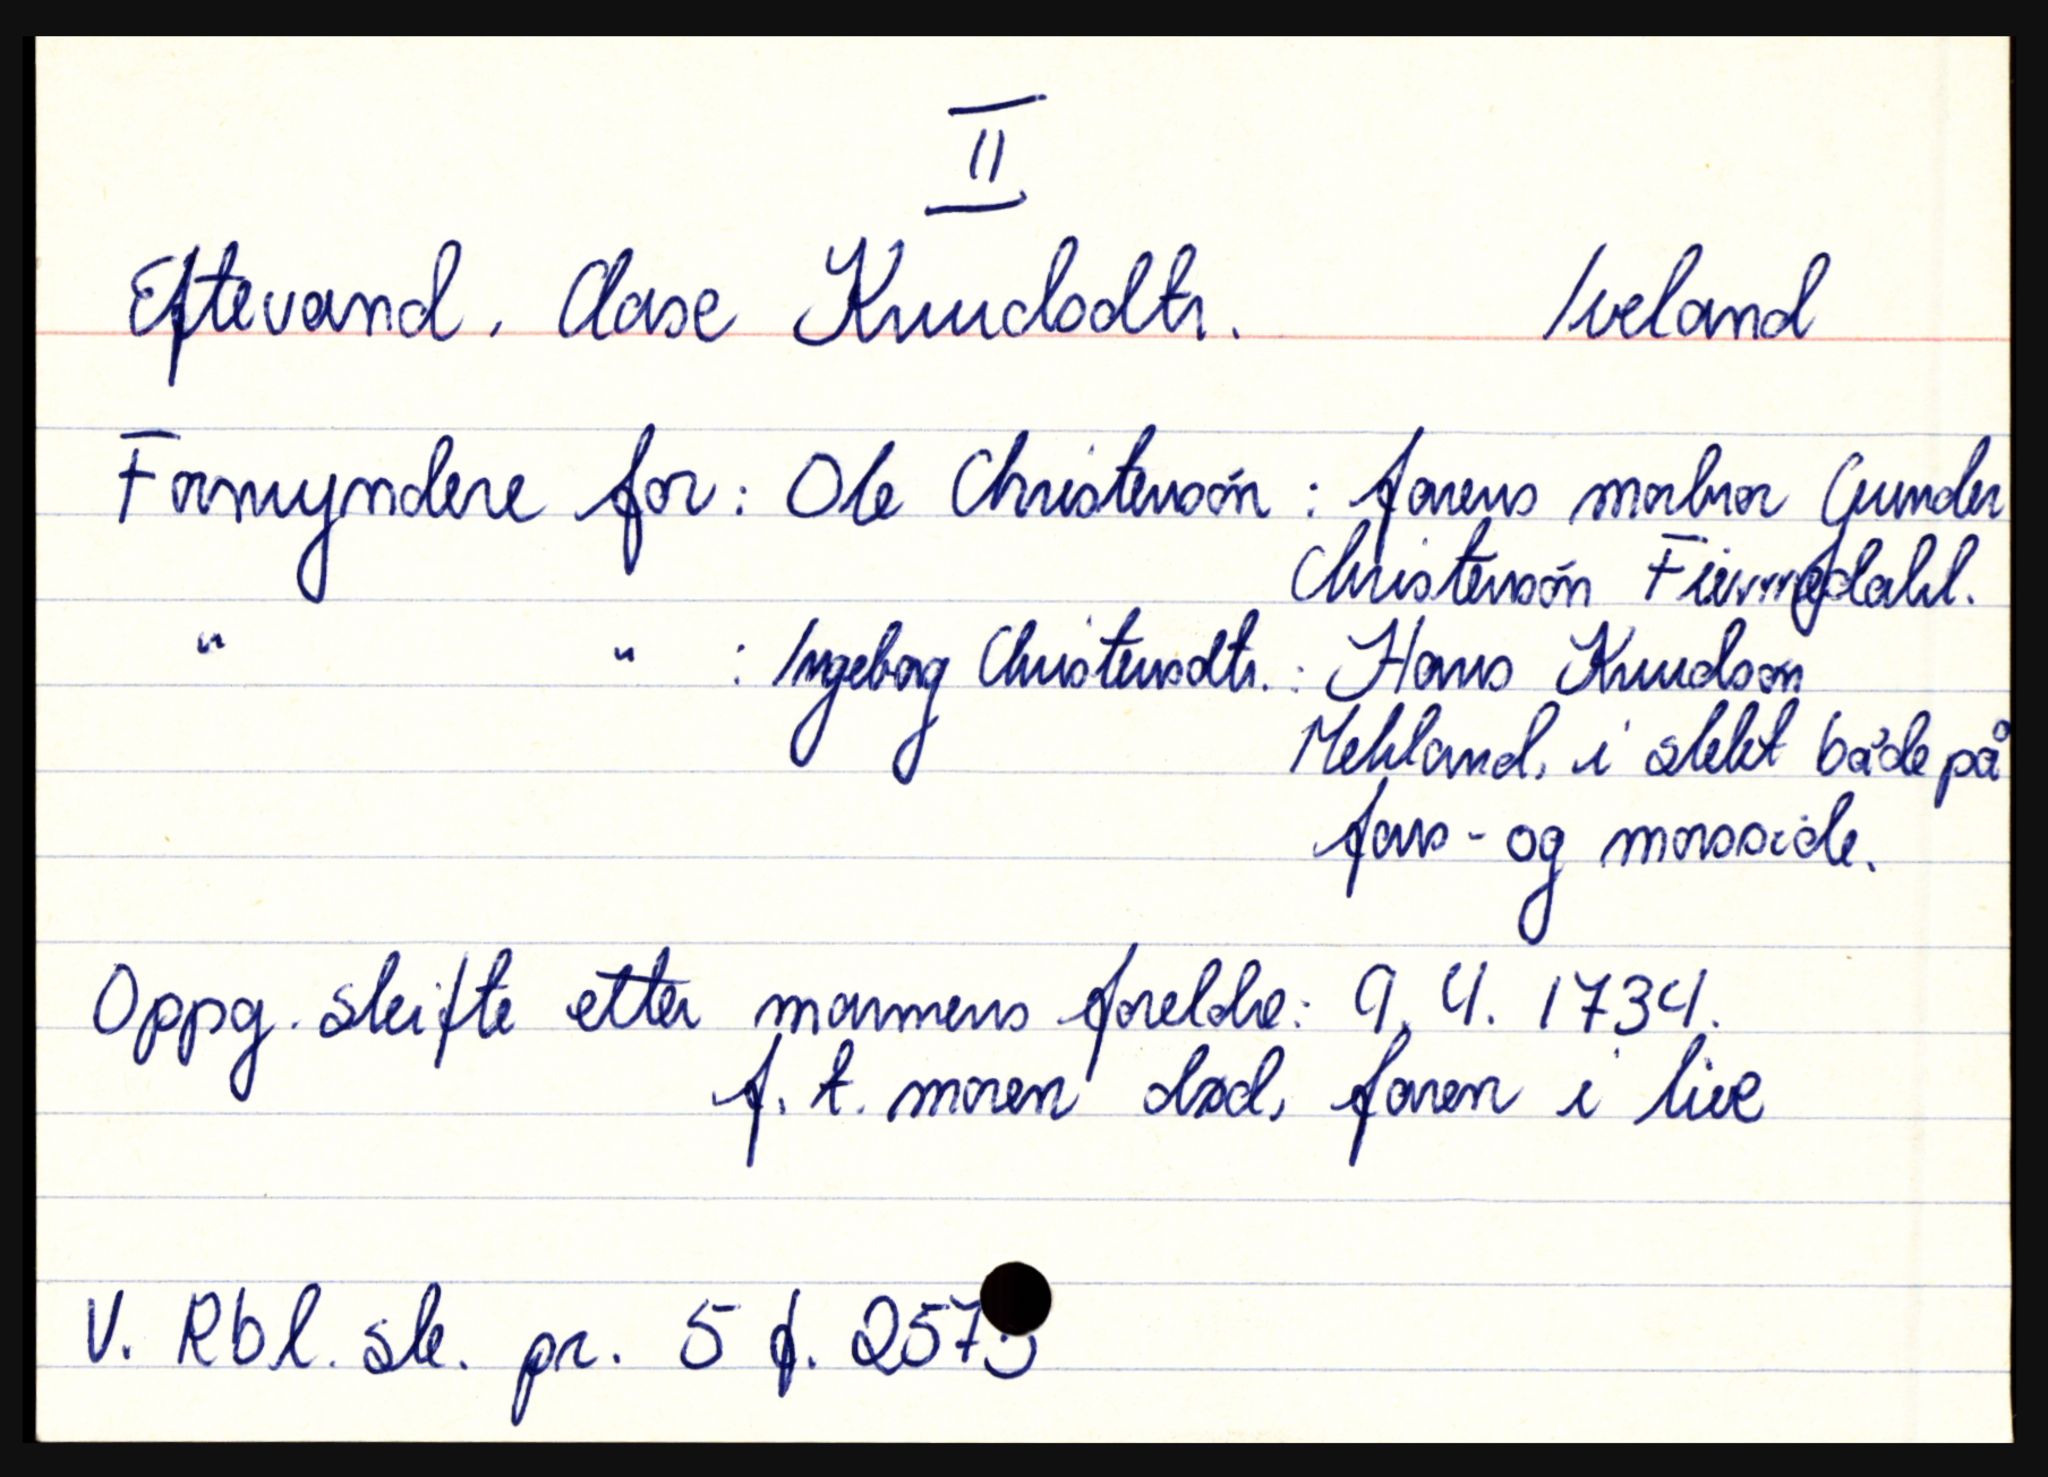 II
Eftevand. Aase Knudsdtr. Iveland
Formyndere for: Ole Christensøn: farens morbror Gunder
Christensøn
" " : Ingeborg Christensdtr.: Hans Knudsøn
Mehland, i slekt både på
fars- og morsside.
Oppg. skifte etter mannens foreldre: 9. 4. 1734.
f. t. moren død, faren i live
V. Rbl. sk. pr. 5 f.